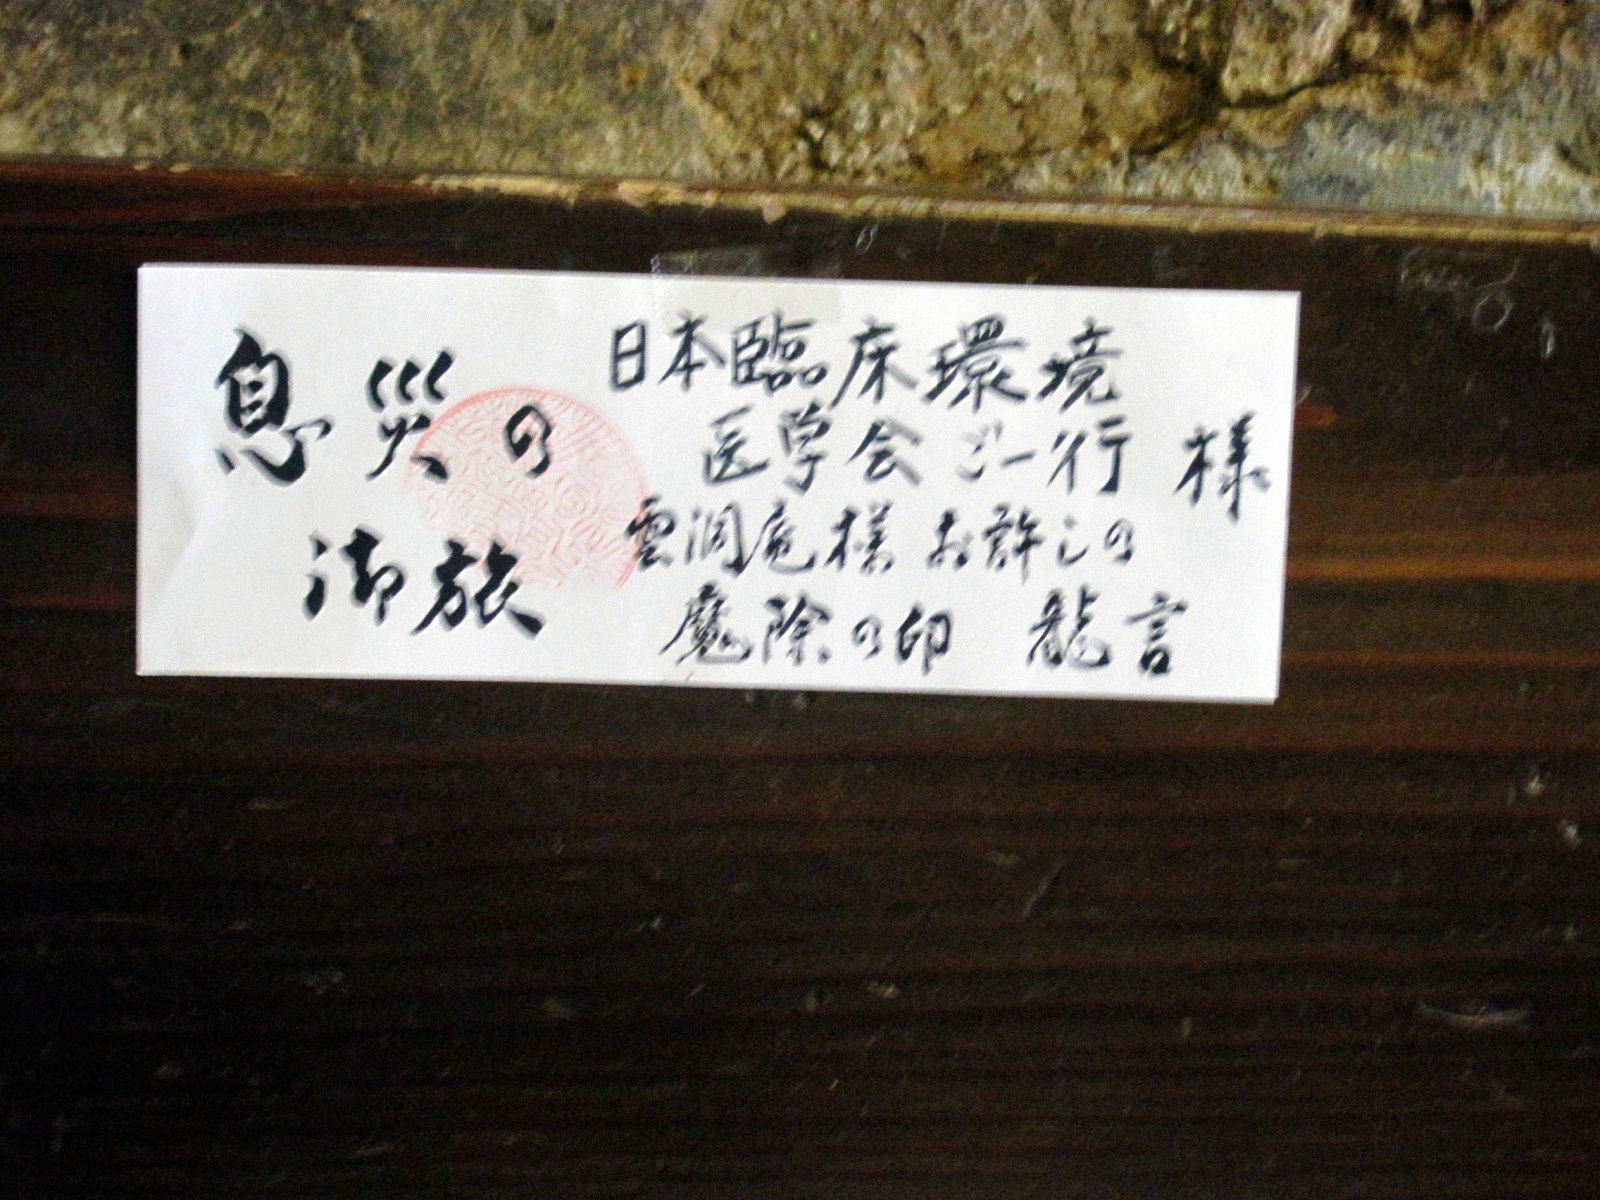 息災の
御旅
日本臨床環境
医学会ご一行 様
雲洞庵様お許しの
魔除の印 龍言